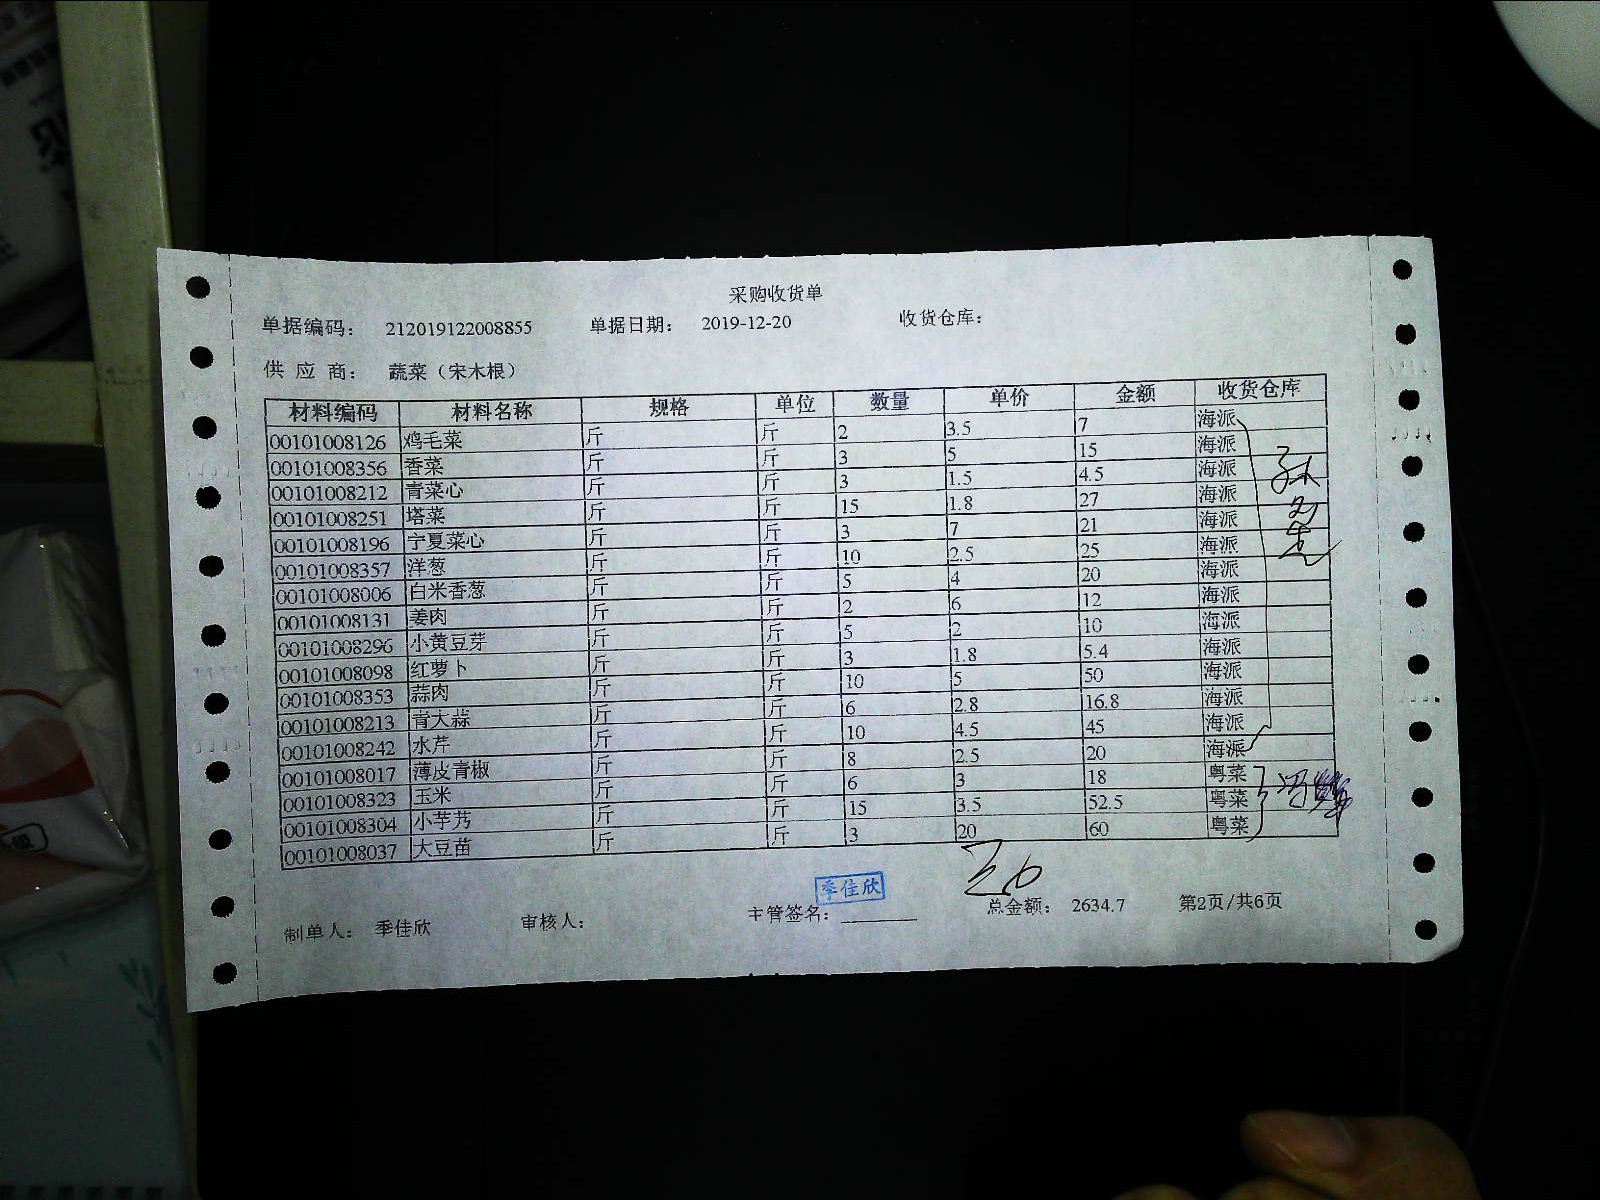 采购收货单
单据编码： 212019122008855 单据日期： 2019-12-20 收货仓库：
供 应 商： 蔬菜（宋木根）
材料编码 材料名称 规格 单位 数量 单价 金额 收货仓库
00101008126 鸡毛菜 斤 斤 2 3.5 7 海派
00101008356 香菜 斤 斤 3 5 15 海派
00101008212 青菜心 斤 斤 3 1.5 4.5 海派
00101008251 塔菜 斤 斤 15 1.8 27 海派
00101008196 宁夏菜心 斤 斤 3 7 21 海派
00101008357 洋葱 斤 斤 10 2.5 25 海派
00101008006 白米香葱 斤 斤 5 4 20 海派
00101008131 姜肉 斤 斤 2 6 12 海派
00101008296 小黄豆芽 斤 斤 5 2 10 海派
00101008098 红萝卜 斤 斤 3 1.8 5.4 海派
00101008353 蒜肉 斤 斤 10 5 50 海派
00101008213 青大蒜 斤 斤 6 2.8 16.8 海派
00101008242 水芹 斤 斤 10 4.5 45 海派
00101008017 薄皮青椒 斤 斤 8 2.5 20 海派
00101008323 玉米 斤 斤 6 3 18 粤菜
00101008304 小芋艿 斤 斤 15 3.5 52.5 粤菜
00101008037 大豆苗 斤 斤 3 20 60 粤菜
季佳欣
制单人： 季佳欣 审核人： 主管签名： 总金额： 2634.7 第2页/共6页